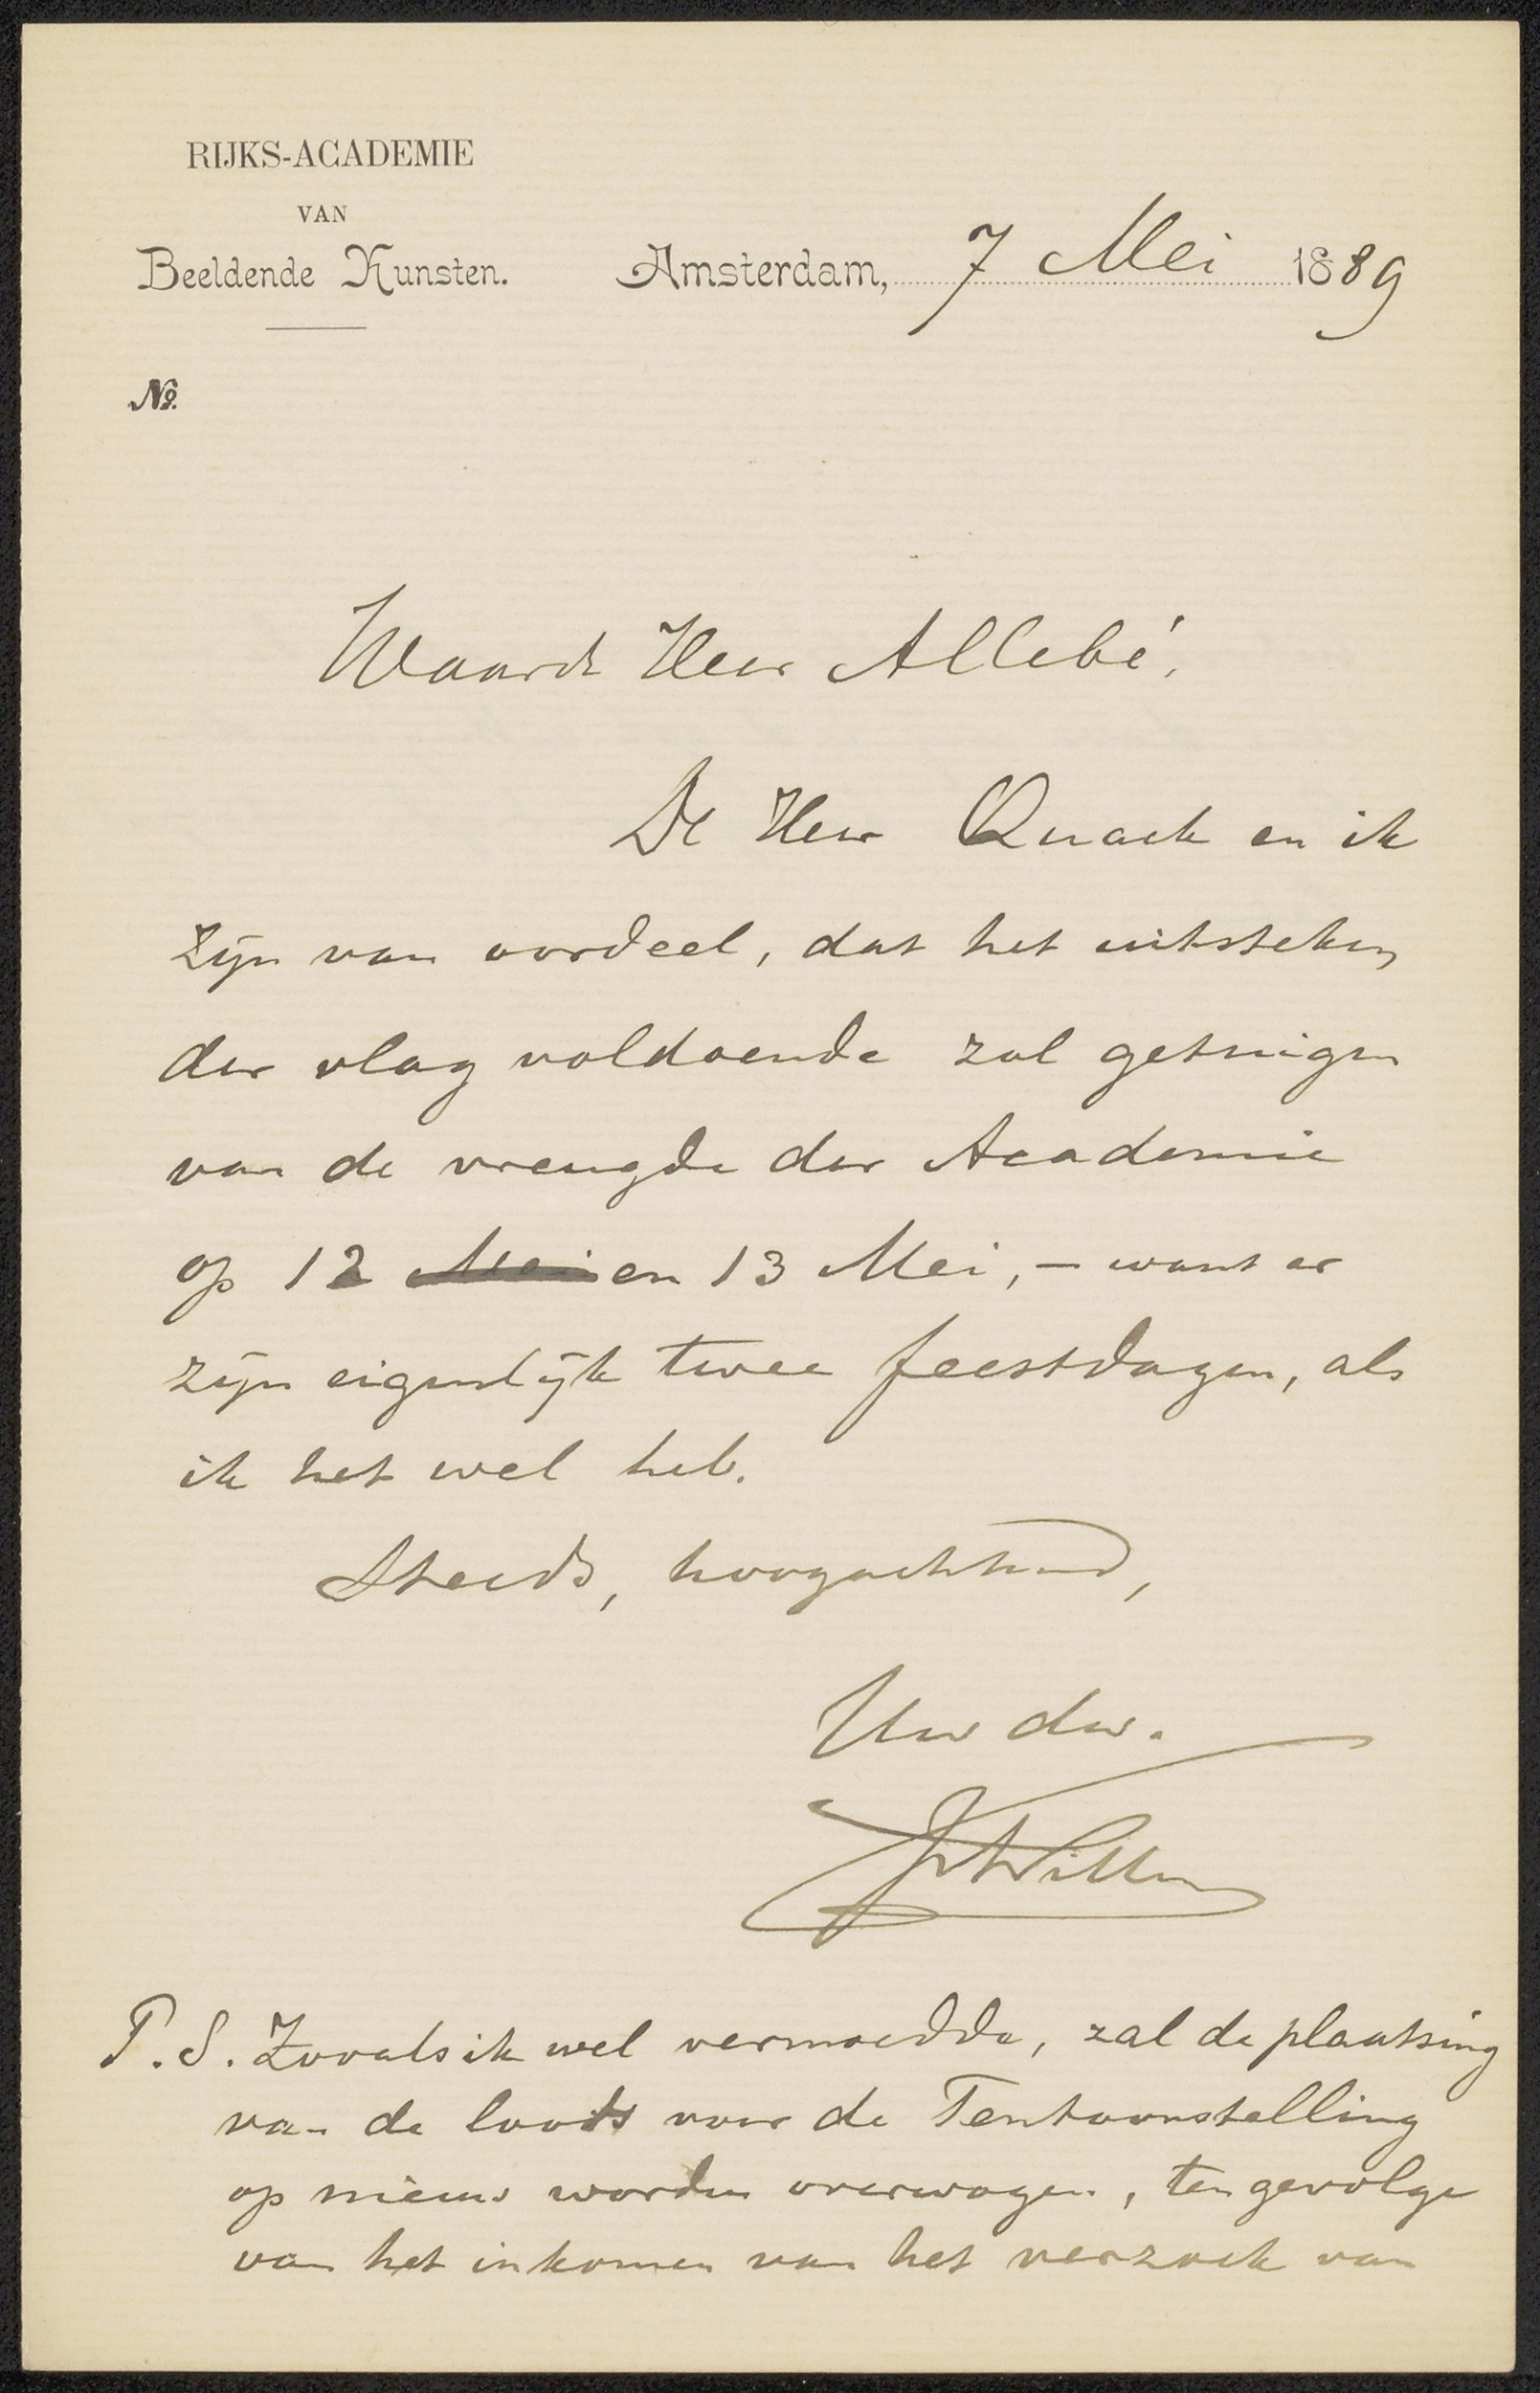 RIJKS-ACADEMIE
VAN
Beeldende Kunsten.
Amsterdam, 7 Mei 1889
No.
Waarde Heer Allebé,
De Heer Quack en ik
zijn van oordeel, dat het uitsteken
der vlag voldoende zal getuigen
van de vreugde der Academie
op 12 Mei en 13 Mei, – want er
zijn eigenlijk twee feestdagen, als
ik het wel heb.
Steeds, hoogachtend,
Uw dw.
P.S. Zooals ik wel vermoedde, zal de plaatsing
van de loods voor de Tentoonstelling
op nieuw worden overwogen, ten gevolge
van het inkomen van het verzoek van